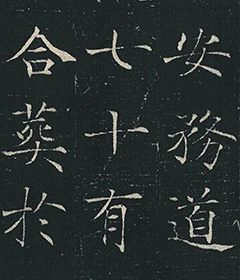 安務道
七十有
合葬於